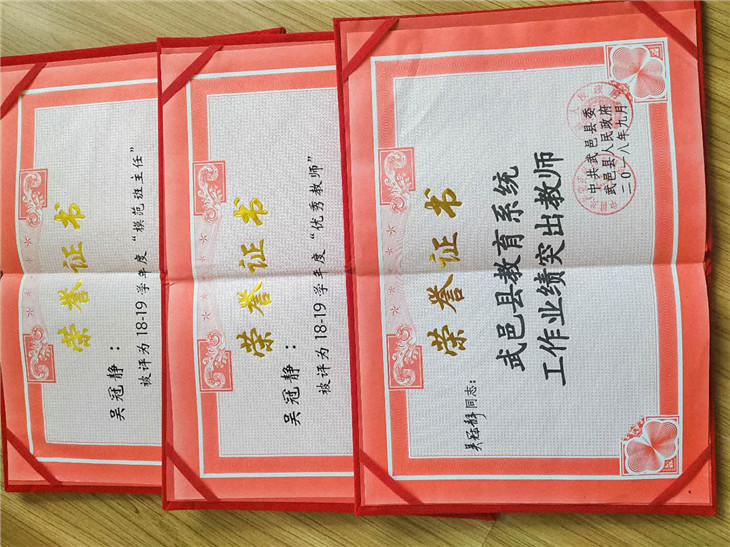 荣誉证书
吴冠静：
被评为18-19学年度“模范班主任”
荣誉证书
吴冠静：
被评为18-19学年度“优秀教师”
荣誉证书
吴冠静同志：
武邑县教育系统
工作业绩突出教师
中共武邑县委
武邑县人民政府
二〇一八年九月